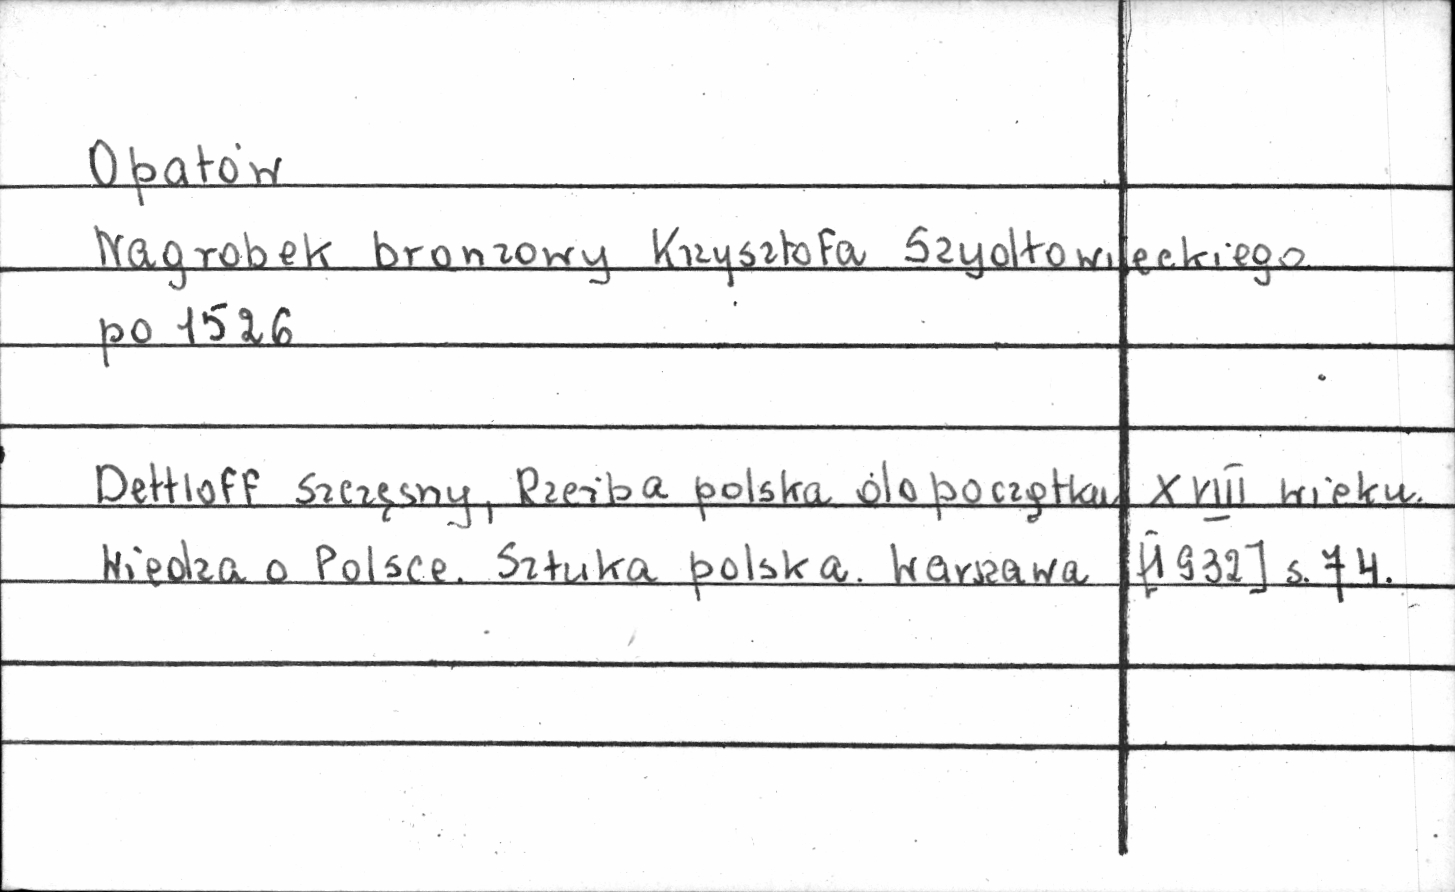 Opatów
Nagrobek bronzowy Krzysztofa Szydłowieckiego
po 1526
Dettloff Szczęsny, Rzeźba polska do początku XVIII wieku.
Wiedza o Polsce. Sztuka polska. Warszawa [1932] s. 74.